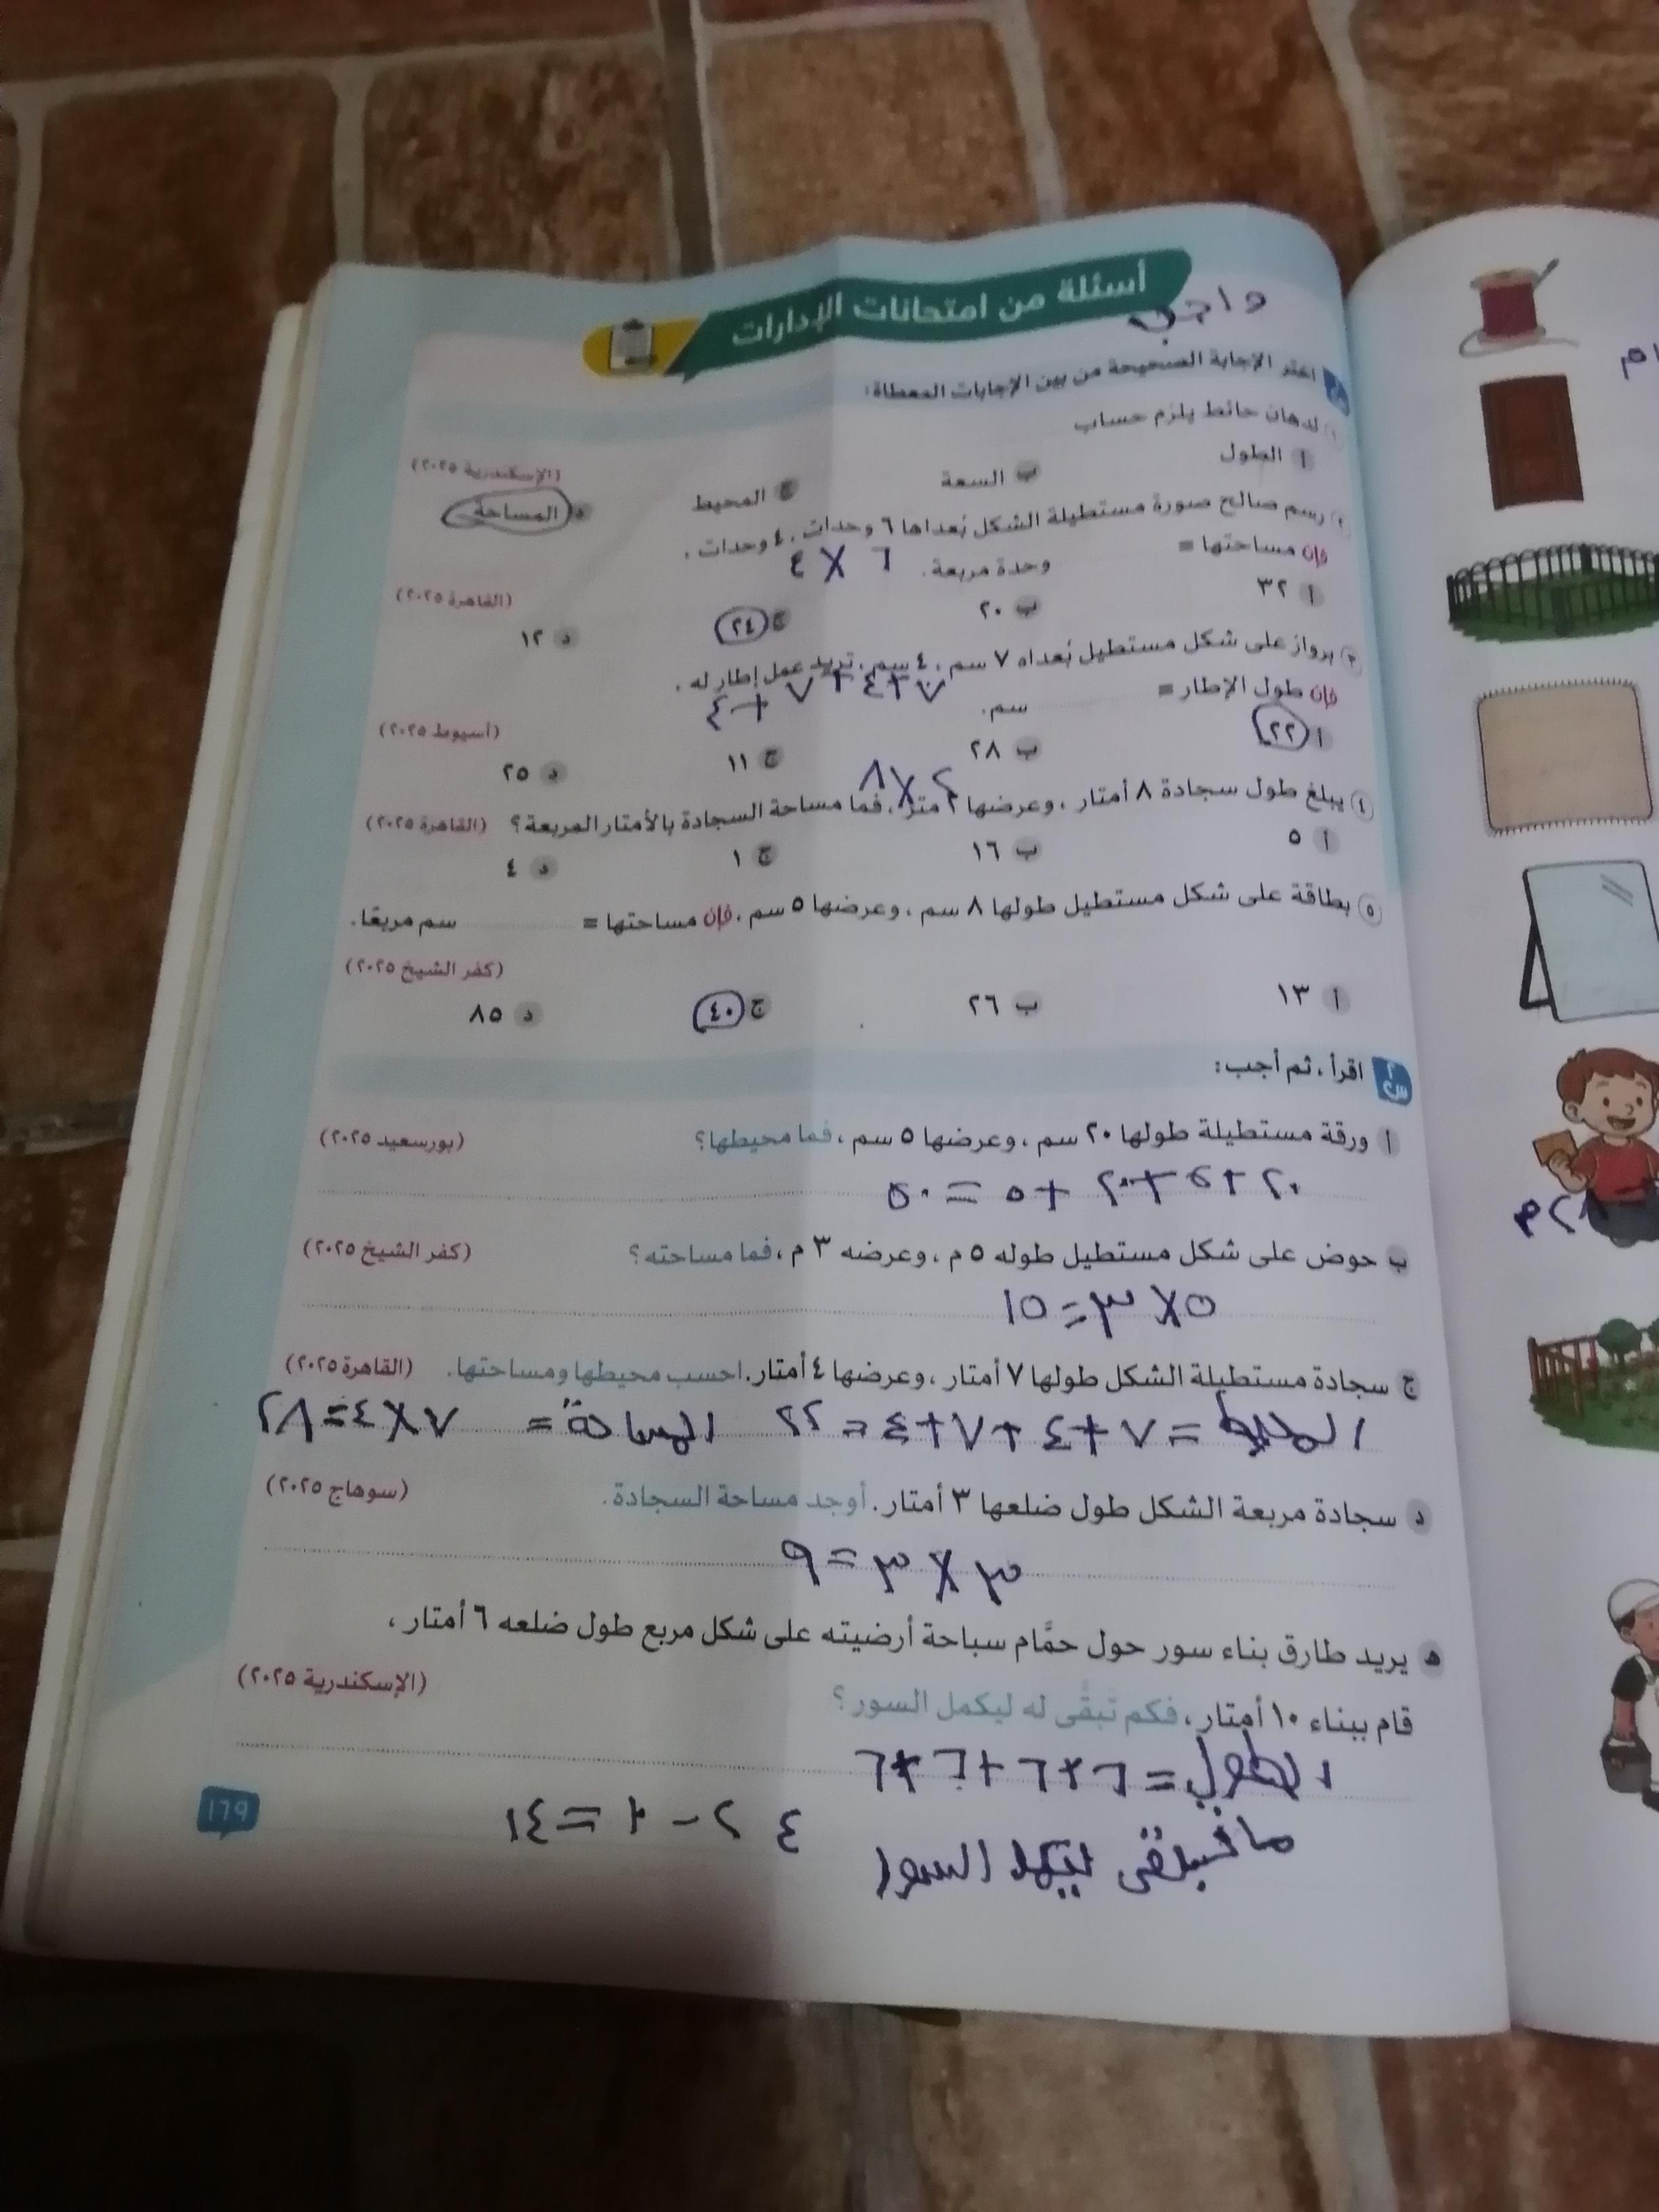 أسئلة من امتحانات الإدارات
واجب
اختر الإجابة الصحيحة من بين الإجابات المعطاة:
١ لدهان حائط يلزم حساب
(الإسكندرية ٢٠٢٥)
أ الطول ب السعة ج المحيط د المساحة
٢ رسم صالح صورة مستطيلة الشكل بُعداها ٦ وحدات، ٤ وحدات،
فإن مساحتها = وحدة مربعة. ٦ × ٤
(القاهرة ٢٠٢٥)
أ ٣٢ ب ٢٠ ج ٢٤ د ١٢
٣ برواز على شكل مستطيل بُعداه ٧ سم، ٤ سم، تريد عمل إطار له،
فإن طول الإطار = سم. ٧+٤+٧
+٤
(أسيوط ٢٠٢٥)
أ ٢٢ ب ٢٨ ج ١١ د ٢٥
٢×٨
٤ يبلغ طول سجادة ٨ أمتار، وعرضها ٢ متر، فما مساحة السجادة بالأمتار المربعة؟ (القاهرة ٢٠٢٥)
أ ٥ ب ١٦ ج ١ د ٤
٥ بطاقة على شكل مستطيل طولها ٨ سم، وعرضها ٥ سم، فإن مساحتها = سم مربعًا.
(كفر الشيخ ٢٠٢٥)
أ ١٣ ب ٢٦ ج ٤٠ د ٨٥
س٢ اقرأ، ثم أجب:
أ ورقة مستطيلة طولها ٢٠ سم، وعرضها ٥ سم، فما محيطها؟ (بورسعيد ٢٠٢٥)
٢٠+٥+٢٠+٥=٥٠
ب حوض على شكل مستطيل طوله ٥ م، وعرضه ٣ م، فما مساحته؟ (كفر الشيخ ٢٠٢٥)
٥×٣=١٥
ج سجادة مستطيلة الشكل طولها ٧ أمتار، وعرضها ٤ أمتار. احسب محيطها ومساحتها. (القاهرة ٢٠٢٥)
المحيط=٧+٤+٧+٤=٢٢ المساحة= ٧×٤=٢٨
د سجادة مربعة الشكل طول ضلعها ٣ أمتار. أوجد مساحة السجادة. (سوهاج ٢٠٢٥)
٣×٣=٩
هـ يريد طارق بناء سور حول حمَّام سباحة أرضيته على شكل مربع طول ضلعه ٦ أمتار،
قام ببناء ١٠ أمتار، فكم تَبقَّى له ليكمل السور؟ (الإسكندرية ٢٠٢٥)
الطول=٦+٦+٦+٦
ليكمل السور
١٦٩